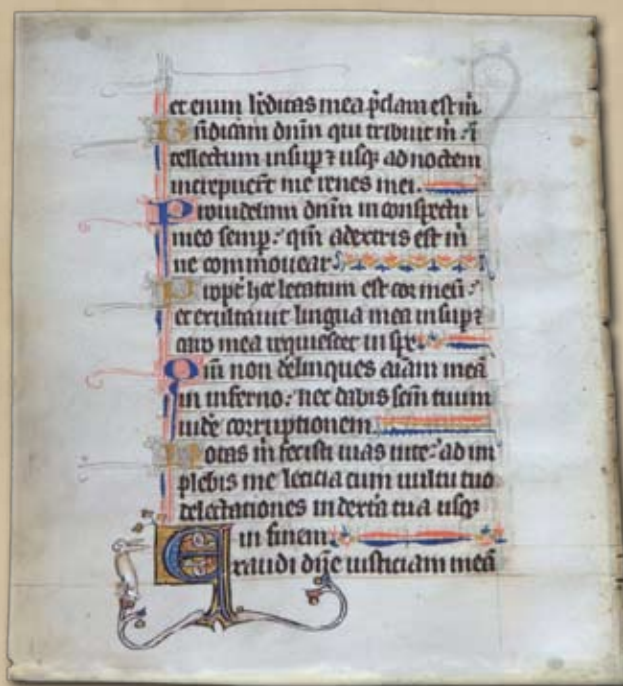 et enim h'ditas mea p̄clara est m̄
B n̄dicam dn̄m qui tribuit m̄ : ī
tellectum insup ⁊ usq; ad noctem
increpuer̄t me renes mei.
P rouidebam dn̄m in conspectu
meo semp : qm̄ a dextris est m̄
ne commouear :
P ropt̄ hoc letatum est cor meū :
et exultauit lingua mea insup ⁊
caro mea requiescet in spe.
Q m̄ non delinques aīam meā
in inferno : nec dabis sc̄m tuum
uide corruptionem
N otas m̄ fecisti uias uite : ad im
plebis me leticia cum uultu tuo
delectationes in dext̄a tua usq;
in finem
E xaudi dn̄e iusticiam meā